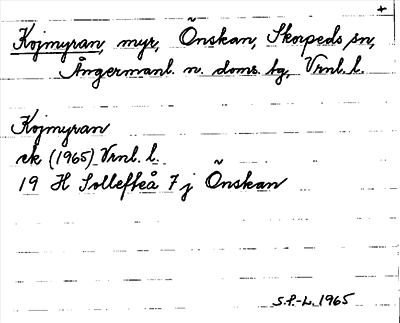 +
Kojmyran, myr, Önskan, Skorpeds sn,
Ångermanl. n. doms. tg, Vrnl. l.
Kojmyran
ek (1965) Vrnl. l.
19 H Sollefteå 7 j Önskan
S.P.-L. 1965